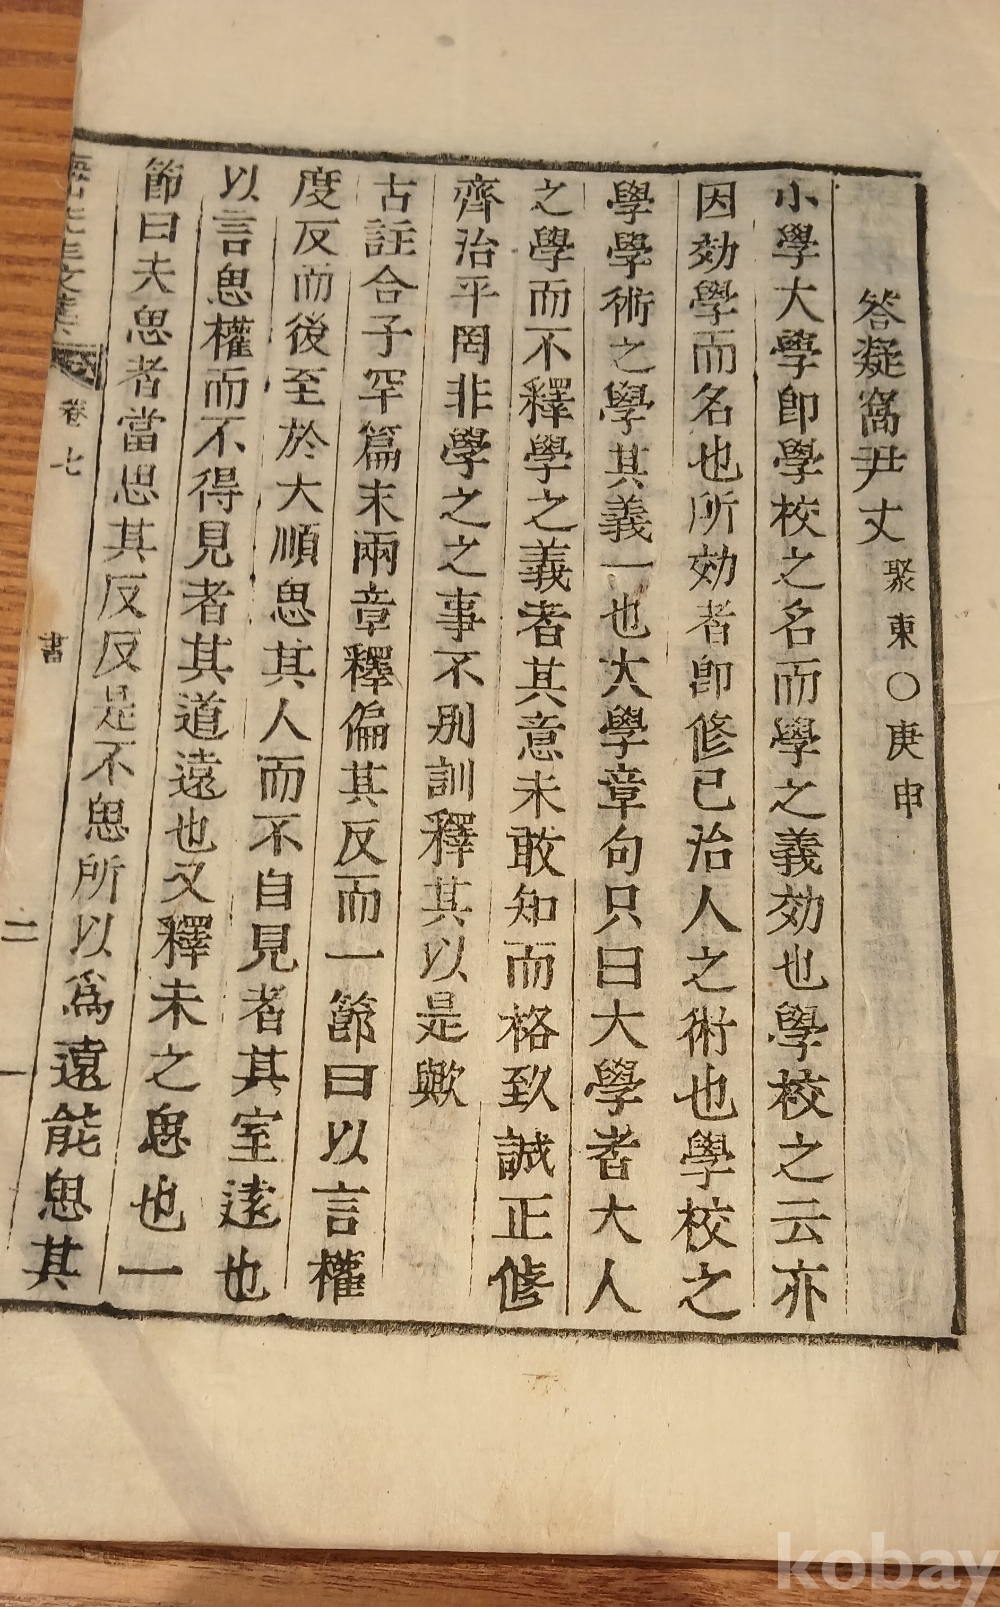 答凝窩尹丈 聚東○庚申
小學大學卽學校之名而學之義効也學校之云亦
因効學而名也所効者卽修已治人之術也學校之
學學術之學其義一也大學章句只曰大學者大人
之學而不釋學之義者其意未敢知而格致誠正修
齊治平罔非學之之事不別訓釋其以是歟
古註合子罕篇末兩章釋偏其反而一節曰以言權
度反而後至於大順思其人而不自見者其室遠也
以言思權而不得見者其道遠也又釋未之思也一
節曰夫思者當思其反反是不思所以爲遠能思其
先生文集 卷七 書 二
kobay